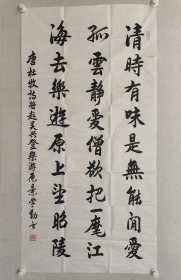 清時有味是無能閒愛
孤雲靜愛僧欲把一麾江
海去樂遊原上望昭陵
唐杜牧詩將赴吳興登樂游原 景學勤書